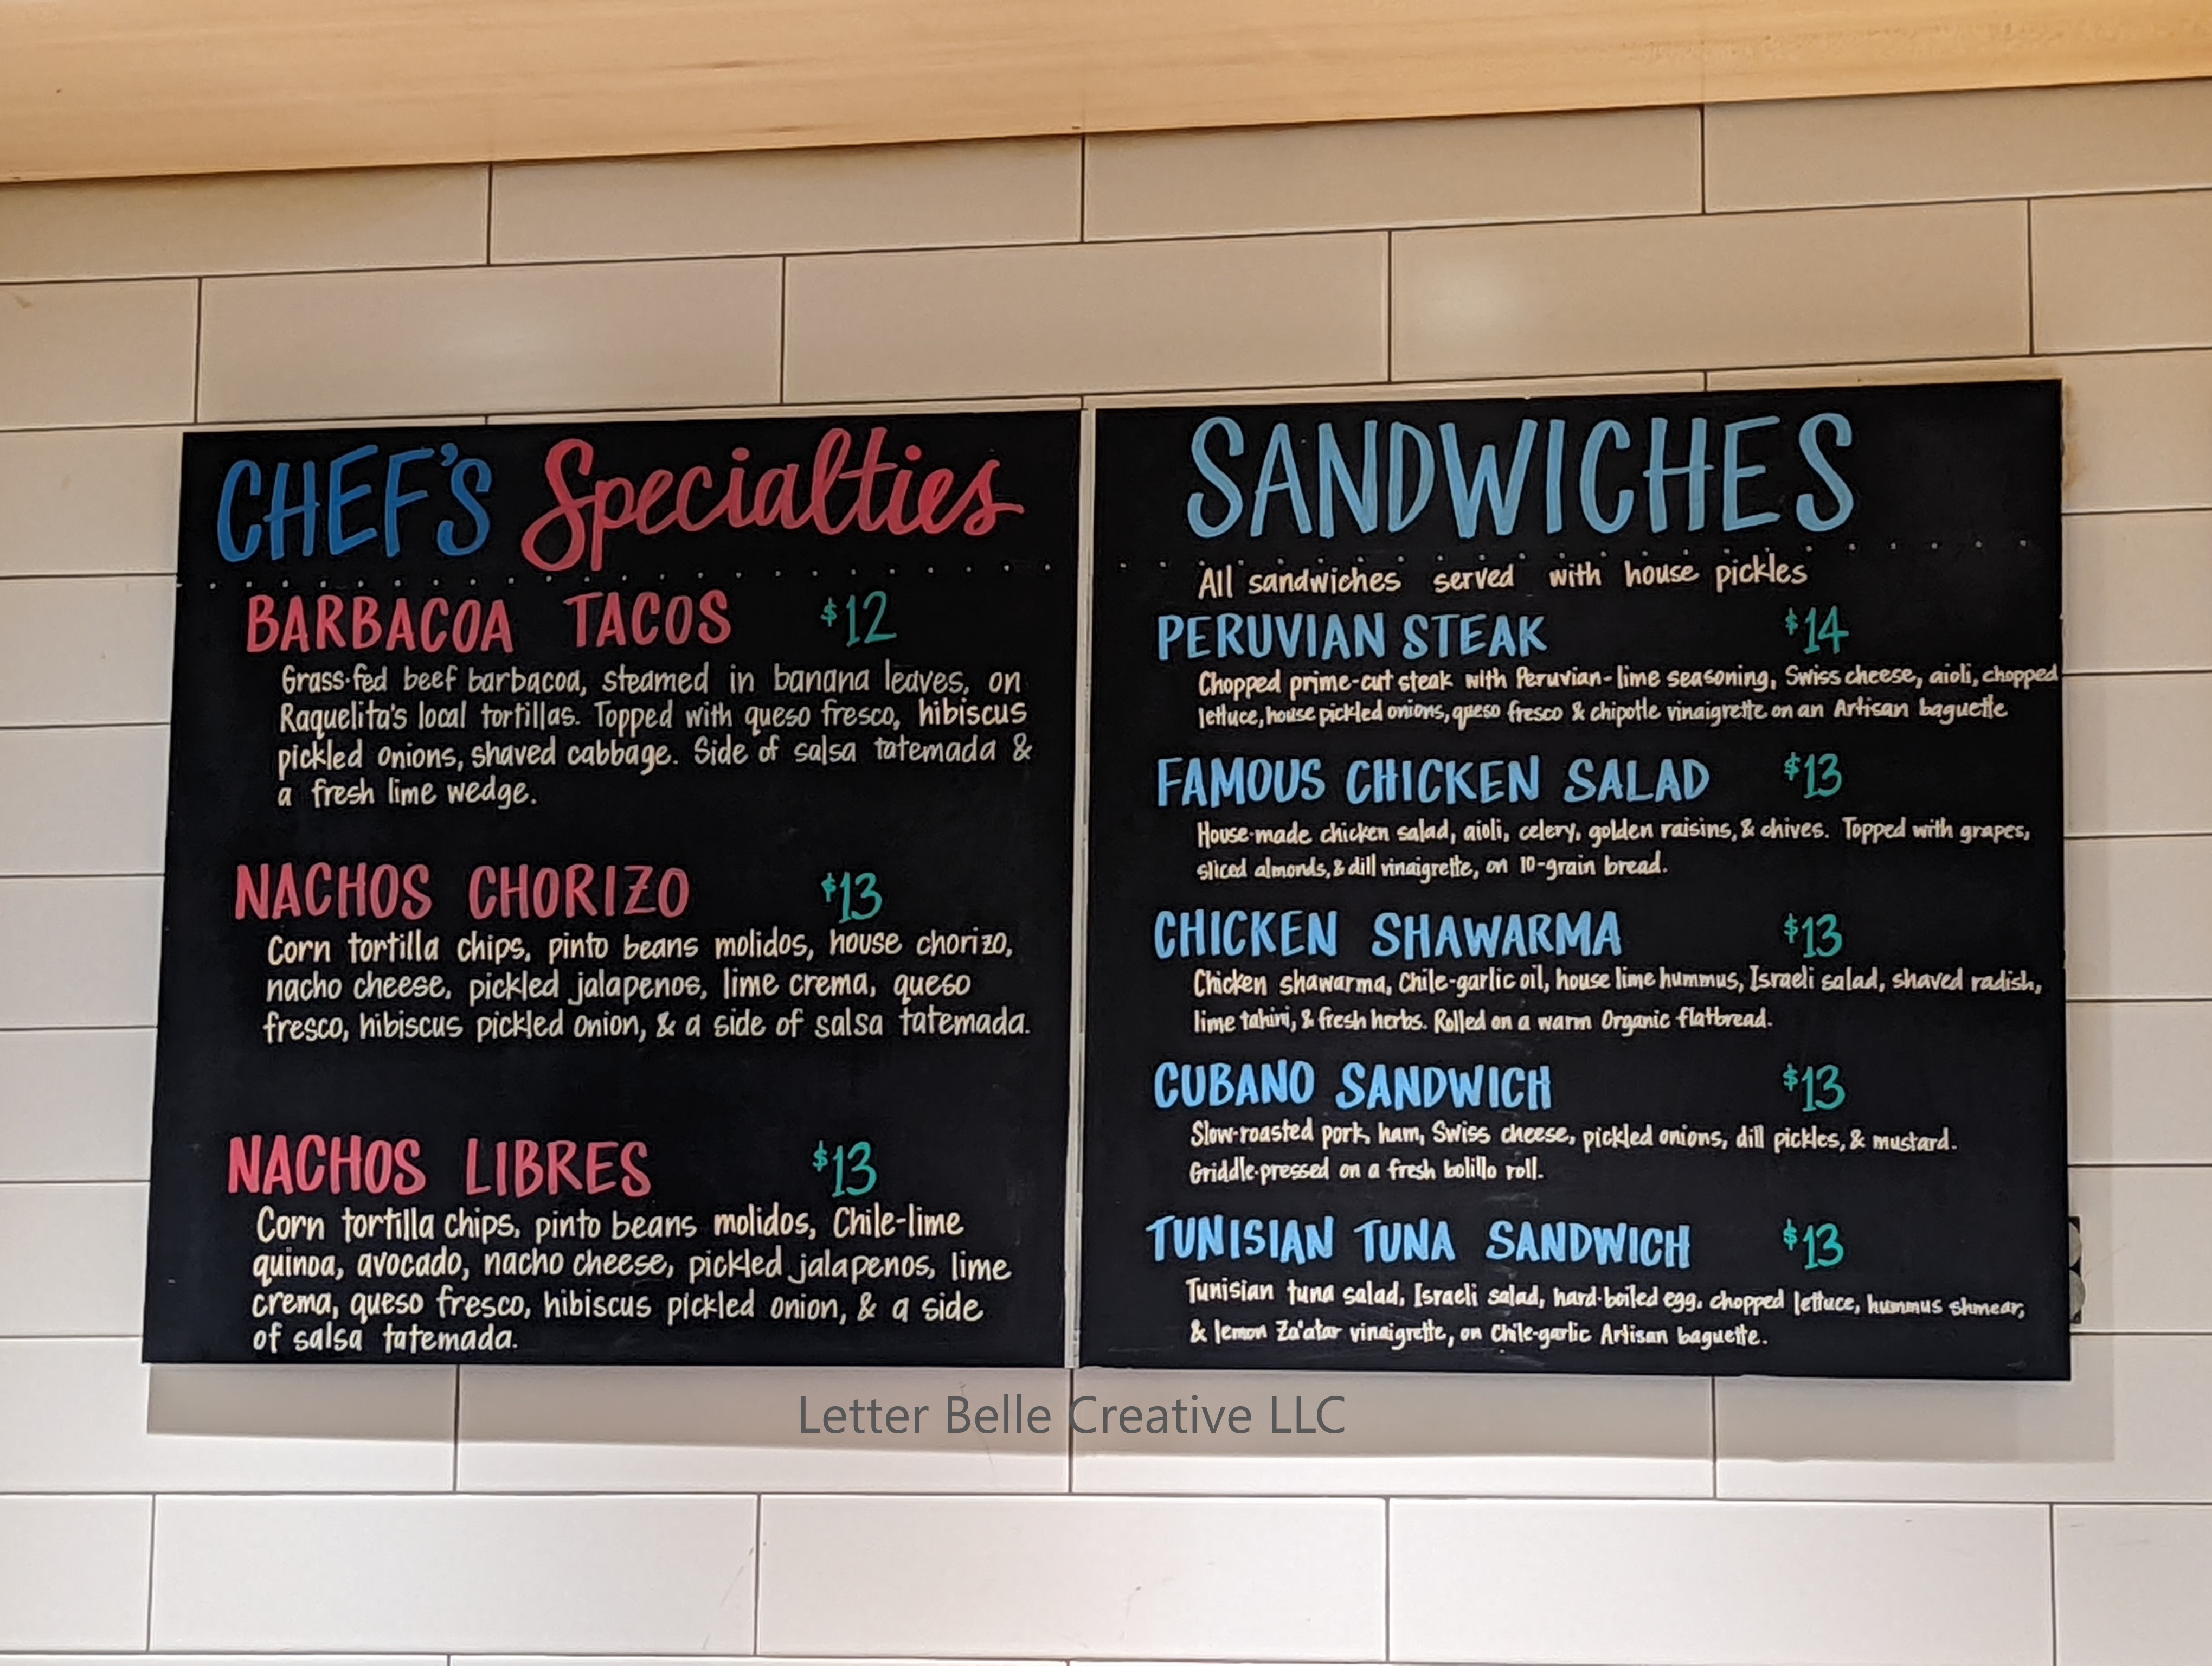 CHEF'S Specialties
BARBACOA TACOS $12
Grass-fed beef barbacoa, steamed in banana leaves, on
Raquelita's local tortillas. Topped with queso fresco, hibiscus
pickled onions, shaved cabbage. Side of salsa tatemada &
a fresh lime wedge.
NACHOS CHORIZO $13
Corn tortilla chips, pinto beans molidos, house chorizo,
nacho cheese, pickled jalapenos, lime crema, queso
fresco, hibiscus pickled onion, & a side of salsa tatemada.
NACHOS LIBRES $13
Corn tortilla chips, pinto beans molidos, Chile-lime
quinoa, avocado, nacho cheese, pickled jalapenos, lime
crema, queso fresco, hibiscus pickled onion, & a side
of salsa tatemada.
SANDWICHES
All sandwiches served with house pickles
PERUVIAN STEAK $14
Chopped prime-cut steak with Peruvian-lime seasoning, Swiss cheese, aioli, chopped
lettuce, house pickled onions, queso fresco & chipotle vinaigrette on an Artisan baguette
FAMOUS CHICKEN SALAD $13
House-made chicken salad, aioli, celery, golden raisins, & chives. Topped with grapes,
sliced almonds, & dill vinaigrette, on 10-grain bread.
CHICKEN SHAWARMA $13
Chicken shawarma, Chile-garlic oil, house lime hummus, Israeli salad, shaved radish,
lime tahini, & fresh herbs. Rolled on a warm Organic flatbread.
CUBANO SANDWICH $13
Slow-roasted pork, ham, Swiss cheese, pickled onions, dill pickles, & mustard.
Griddle-pressed on a fresh bolillo roll.
TUNISIAN TUNA SANDWICH $13
Tunisian tuna salad, Israeli salad, hard-boiled egg, chopped lettuce, hummus shmear,
& lemon Za'atar vinaigrette, on Chile-garlic Artisan baguette.
Letter Belle Creative LLC